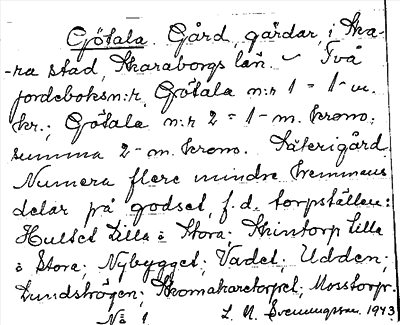 Götala. Gård, gärdar, i Ska-
-ra stad, Skaraborgs län. - Två
jordeboksn:r, Götala n:r 1 = 1-m.
kr.; Götala n:r 2 = 1-m. krono;
summa 2-m. krono. Säterigård.
Numera flere mindre hemmans
delar på godset, f.d. torpställen:
Hultet Lilla o Stora; Skintorp Lilla
o Stora; Nybygget; Vadet; Udden;
Lundskögen; Skomakaretorpet; Mosstorp.
No 1 L. M. Svenungsson. 1943